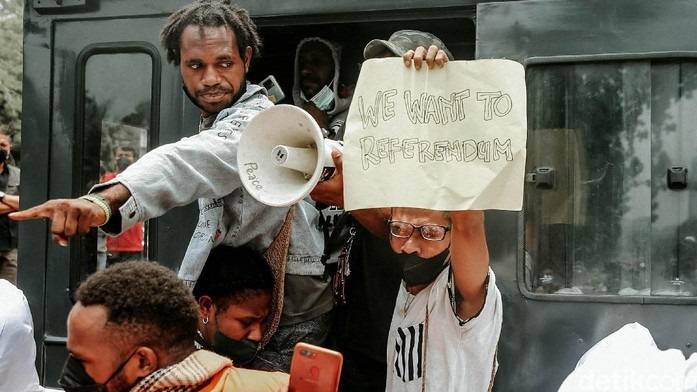 WE WANT TO
REFERENDUM
Peace
detikcom